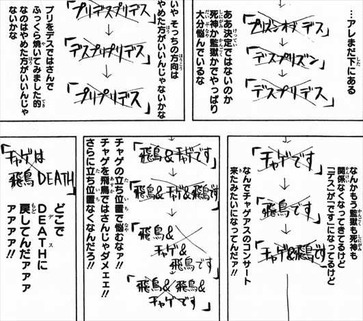 …アレまだ下にある
「プリズンオブデス」
「デスプリズン」
「デスプリデス」
ああ決定ではないのか
死神か監獄かでやっぱり
大分悩んでいるな
「プリデスプリデス」
「デスプリプリデス」
「プリプリデス」
いや そっちの方向は
やめた方がいいんじゃないかな
プリをデスではさんで
ふっくら焼いてみました的
なのはやめた方がいいんじゃ
ないかな
なんかもう監獄も死神も
関係なくなってきてるけど
「デス」が「です」になってるけど
「チャゲです」
「飛鳥です」
「チャゲ&飛鳥です」
なんでチャゲアスのコンサート
来たみたいになってんだァ!!
「飛鳥&チャゲです」
「飛鳥&チャゲ&飛鳥です」
「飛鳥&
チャゲ&
飛鳥です」
「飛鳥&
飛鳥&
チャゲです」
チャゲの立ち位置で悩むなァ!!
チャゲを飛鳥ではさんじゃダメェェ!!
さらに立ち位置なくなんだろ!!
「チャゲは
飛鳥DEATH」
どこで
DEATHに
デス
戻してんだァァ
ァァァ!!